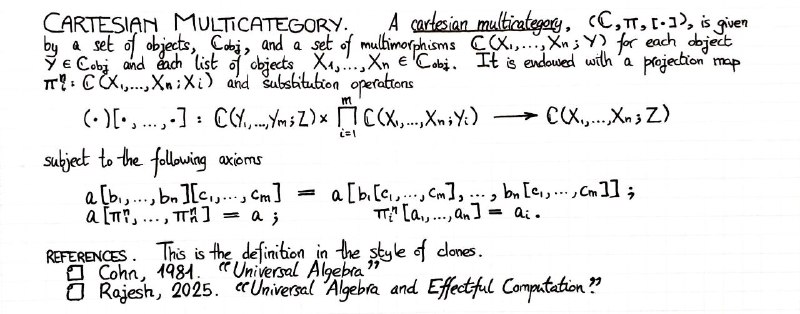 CARTESIAN MULTICATEGORY. A cartesian multicategory, (ℂ, π, [·]), is given
by a set of objects, ℂobj, and a set of multimorphisms ℂ(X₁,...,Xn; Y) for each object
Y ∈ ℂobj and each list of objects X₁,...,Xn ∈ ℂobj. It is endowed with a projection map
πᵢⁿ: ℂ(X₁,...,Xn; Xi) and substitution operations
(·)[·,...,·] : ℂ(Y₁,...,Ym; Z) × ∏_{i=1}^{m} ℂ(X₁,...,Xn; Yi) ⟶ ℂ(X₁,...,Xn; Z)
subject to the following axioms
a[b₁,...,bn][c₁,...,cm] = a[b₁[c₁,...,cm],..., bn[c₁,...,cm]] ;
a[π₁ⁿ,...,πₙⁿ] = a ; πᵢⁿ[a₁,...,an] = ai.
REFERENCES. This is the definition in the style of clones.
☐ Cohn, 1981. "Universal Algebra"
☐ Rajesh, 2025. "Universal Algebra and Effectful Computation"